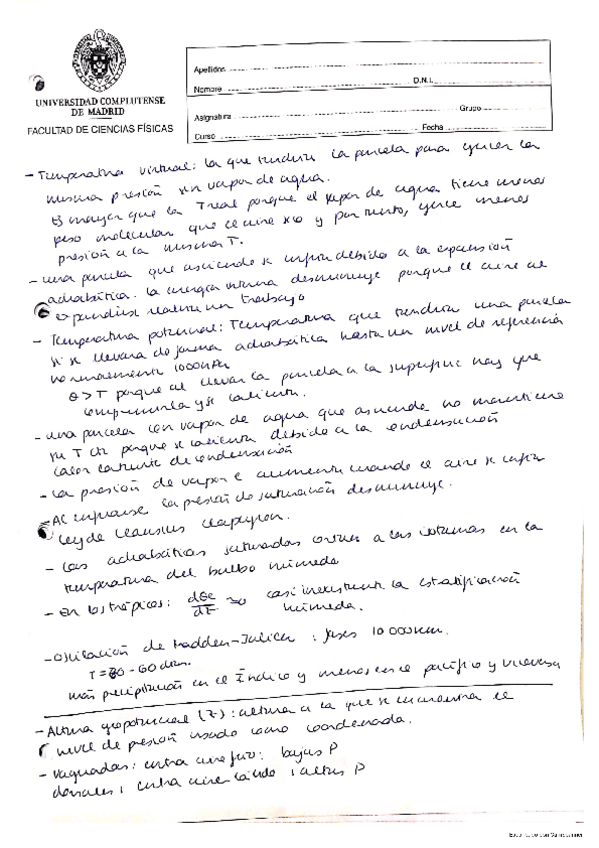 UNIVERSIDAD COMPLUTENSE
DE MADRID
FACULTAD DE CIENCIAS FÍSICAS
Apellidos
Nombre D.N.I.
Asignatura Grupo
Curso Fecha
- Temperatura virtual: la que tendría la parcela para ejercer la
misma presión sin vapor de agua.
Es mayor que la T real porque el vapor de agua tiene menos
peso molecular que el aire seco y por tanto, ejerce menos
presión a la misma T.
- una parcela que asciende se enfría debido a la expansión
adiabática. La energía interna disminuye porque el aire al
expandirse realiza un trabajo
- Temperatura potencial: Temperatura que tendría una parcela
si se llevara de forma adiabática hasta un nivel de referencia
normalmente 1000 hPa
θ > T porque al llevar la parcela a la superficie hay que
comprimirla y se calienta.
- una parcela con vapor de agua que asciende no mantiene
su T cte porque se calienta debido a la condensación
calor latente de condensación
- La presión de vapor e aumenta cuando el aire se enfría
- Al enfriarse la presión de saturación disminuye.
Ley de Clausius Clapeyron.
- Las adiabáticas saturadas cortan a las isotermas en la
temperatura del bulbo húmedo
- En los trópicos: dθe/dz ≈ 0 casi inexistente la estratificación
húmeda.
- Oscilación de Madden-Julian: fases 10 000 km.
T = 30 - 60 días.
más precipitación en el Índico y menos en el pacífico y viceversa
- Altura geopotencial (Z): altura a la que se encuentra el
nivel de presión usado como coordenada.
- Vaguadas: entra aire frío: bajas P
dorsales: entra aire cálido: altas P